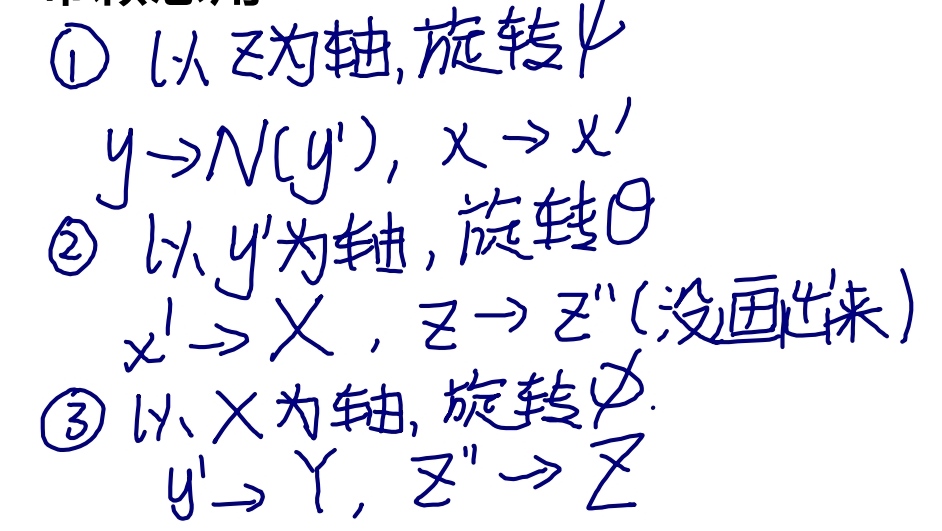 ① 以z为轴,旋转ψ
y→N(y'), x→x'
② 以y'为轴,旋转θ
x'→X, z→z"(没画出来)
③ 以X为轴,旋转φ.
y'→Y, z"→Z